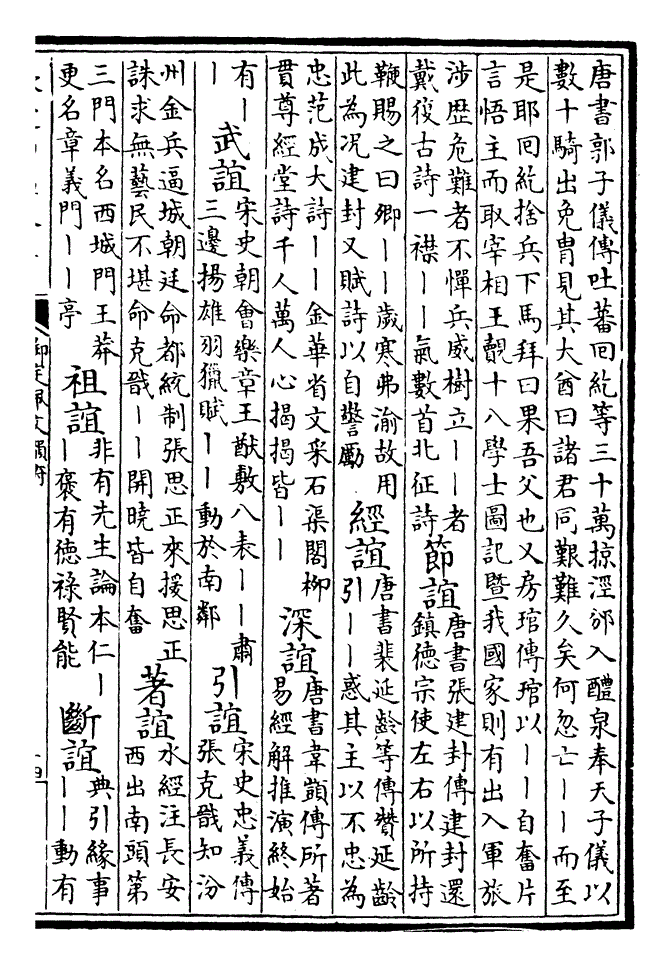 唐書郭子儀傳吐蕃回紇等三十萬掠涇邠入醴泉奉天子儀以
數十騎出免冑見其大酋曰諸君同艱難久矣何忽亡丨丨而至
是耶回紇捨兵下馬拜曰果吾父也又房琯傳琯以丨丨自奮片
言悟主而取宰相王覿十八學士圖記暨我國家則有出入軍旅
涉歴危難者不憚兵威樹立丨丨者
戴復古詩一襟丨丨氣數首北征詩
節誼
唐書張建封傳建封還
鎮德宗使左右以所持
鞭賜之曰卿丨丨歲寒弗渝故用
此為况建封又賦詩以自警勵
經誼
唐書裴延齡等傳贊延齡
引丨丨惑其主以不忠為
忠范成大詩丨丨金華省文采石渠閣柳
貫尊經堂詩千人萬人心揭揭皆丨丨
深誼
唐書韋顗傳所著
易經解推演終始
有丨
丨
武誼
宋史朝會樂章王猷敷八表丨丨肅
三邊揚雄羽獵賦丨丨動於南鄰
引誼
宋史忠義傳
張克戩知汾
州金兵逼城朝廷命都統制張思正來援思正
誅求無藝民不堪命克戩丨丨開曉皆自奮
著誼
水經注長安
西出南頭第
三門本名西城門王莽
更名章義門丨丨亭
祖誼
非有先生論本仁丨
丨褒有德祿賢能
斷誼
典引緣事
丨丨動有
御定佩文韻府